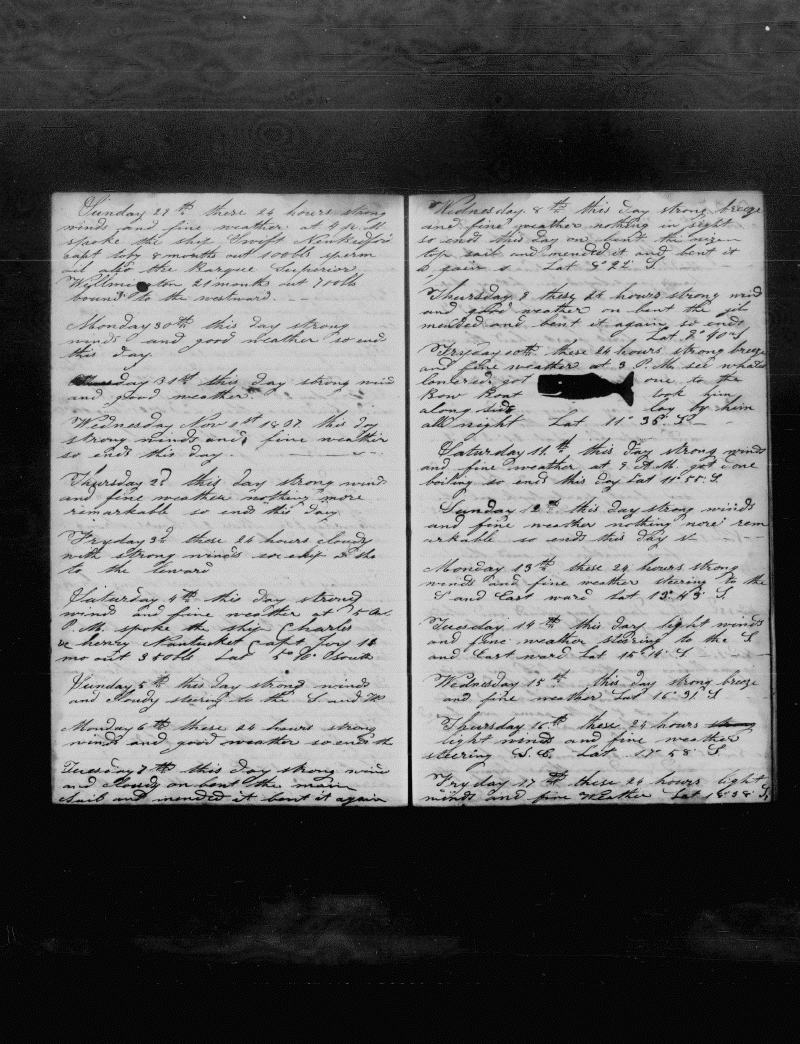 Sunday 29th these 24 hours strong
winds and fine weather at 4 P.M
spoke the ship Swift Newbedford
capt 8 months out 100bls sperm
oil also the Barque Superior
Wyllmington 21 months out 700bls
bound to the westward
Monday 30th this day strong
winds and good weather so end
this day
day 31st this day strong wind
and good weather
Wednesday Nov 1st 1837 this day
strong winds and fine weather
so ends this day
Thursday 2d this day strong wind
and fine weather nothing more
remarkable so ends this day
Fryday 3d these 24 hours cloudy
with strong winds
to the leward
Saturday 4th this day strong
winds and fine weather at 5
P.M. spoke the ship Charles
henry Nantucket capt Joy 11
mo out 350bls Lat South
Sunday 5th this day strong winds
and cloudy steering to the S and W
Monday 6th these 24 hours strong
winds and good weather so ends the
Tuesday 7th this day strong wind
and cloudy on bent the main
sail and mended it bent it again
Wednesday 8th this day strong breeze
and fine weather nothing in sight
so ends this day on bent the mizen
top sail and mended it and bent it
a gain Lat S
Thursday 9 these 24 hours strong wind
and good weather on bent the jib
mended and bent it again so ends
Lat 9° 40 S
Fryday 10th these 24 hours strong breeze
and fine weather at 3 P.M. see whales
lowered got one to the
Bow Boat took him
along side lay by him
all night Lat 11° 36' S
Saturday 11th this day strong winds
and fine weather at 9 A.M. got done
boiling so ends this day Lat 11° 55' S
Sunday 12th this day strong winds
and fine weather nothing more rem
arkable so ends this day
Monday 13th these 24 hours strong
winds and fine weather steering to the
S and East ward Lat 13° 43' S
Tuesday 14th this day light winds
and fine weather steering to the S
and East ward Lat 15° 16' S
Wednesday 15th this day strong breeze
and fine weather Lat 16° 31' S
Thursday 16th these 24 hours strong
light winds and fine weather
steering S.E. Lat 17° 58' S
Fryday 17th these 24 hours light
winds and fine Weather Lat 18° 38' S